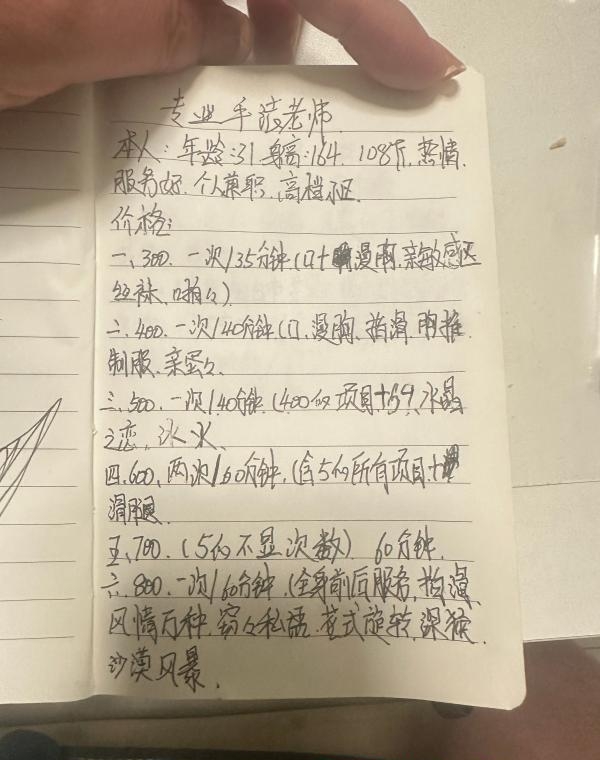 专业手渡老师
本人:年龄:31 身高:164. 108斤,热情.
服务好.个人兼职.高档小区.
价格:
一、300. 一次/35分钟(口+漫胸.亲敏感区
丝袜、啪々)
二、400. 一次/40分钟(口、漫胸、拍滑.胸推
制服、亲蛋々.
三、500. 一次/40分钟(400的项目+59,水晶
之恋.冰火.
四.600、两次/60分钟,(含5的所有项目+
滑腿.
五、700.(5的不显次数) 60分钟.
六、800. 一次/60分钟(全身前后服务,拍漫
风情万种.窃々私语.花式旋转.深猴.
沙漠风暴.